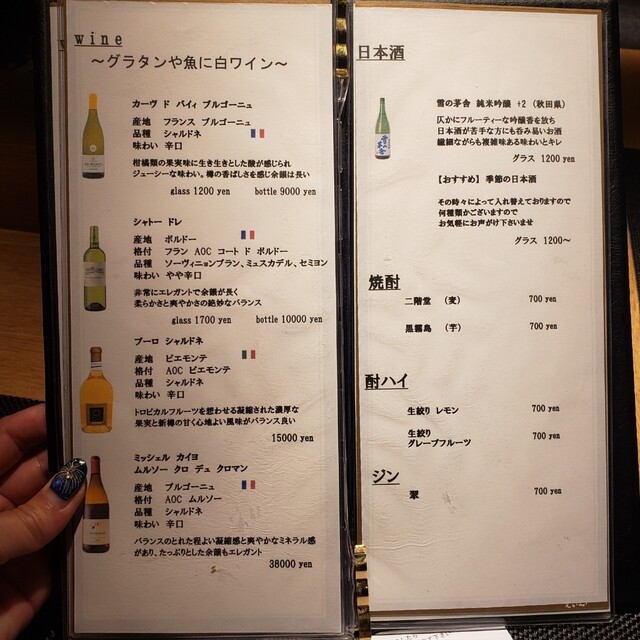 wine
～グラタンや魚に白ワイン～
カーヴ ド バイィ ブルゴーニュ
産地 フランス ブルゴーニュ
品種 シャルドネ
味わい 辛口
柑橘類の果実味に生き生きとした酸が感じられ
ジューシーな味わい。樽の香ばしさを感じ余韻は長い
glass 1200 yen bottle 9000 yen
シャトー ドレ
産地 ボルドー
格付 フラン AOC コート ド ボルドー
品種 ソーヴィニョンブラン、ミュスカデル、セミヨン
味わい やや辛口
非常にエレガントで余韻が長く
柔らかさと爽やかさの絶妙なバランス
glass 1700 yen bottle 10000 yen
ブーロ シャルドネ
産地 ピエモンテ
格付 AOC ピエモンテ
品種 シャルドネ
味わい 辛口
トロピカルフルーツを想わせる凝縮された濃厚な
果実と新樽の甘く心地よい風味がバランス良い
15000 yen
ミッシェル カイヨ
ムルソー クロ デュ クロマン
産地 ブルゴーニュ
格付 AOC ムルソー
品種 シャルドネ
味わい 辛口
バランスのとれた程よい凝縮感と爽やかなミネラル感
があり、たっぷりとした余韻もエレガント
38000 yen
日本酒
雪の茅舎 純米吟醸 +2 (秋田県)
仄かにフルーティーな吟醸香を放ち
日本酒が苦手な方にも呑み易いお酒
繊細ながらも複雑味ある味わいとキレ
グラス 1200 yen
【おすすめ】季節の日本酒
その時々によって入れ替えておりますので
何種類かございますので
お気軽にお声がけ下さいませ
グラス 1200～
焼酎
二階堂 (麦) 700 yen
黒霧島 (芋) 700 yen
酎ハイ
生絞り レモン 700 yen
生絞り
グレープフルーツ 700 yen
ジン
翠 700 yen